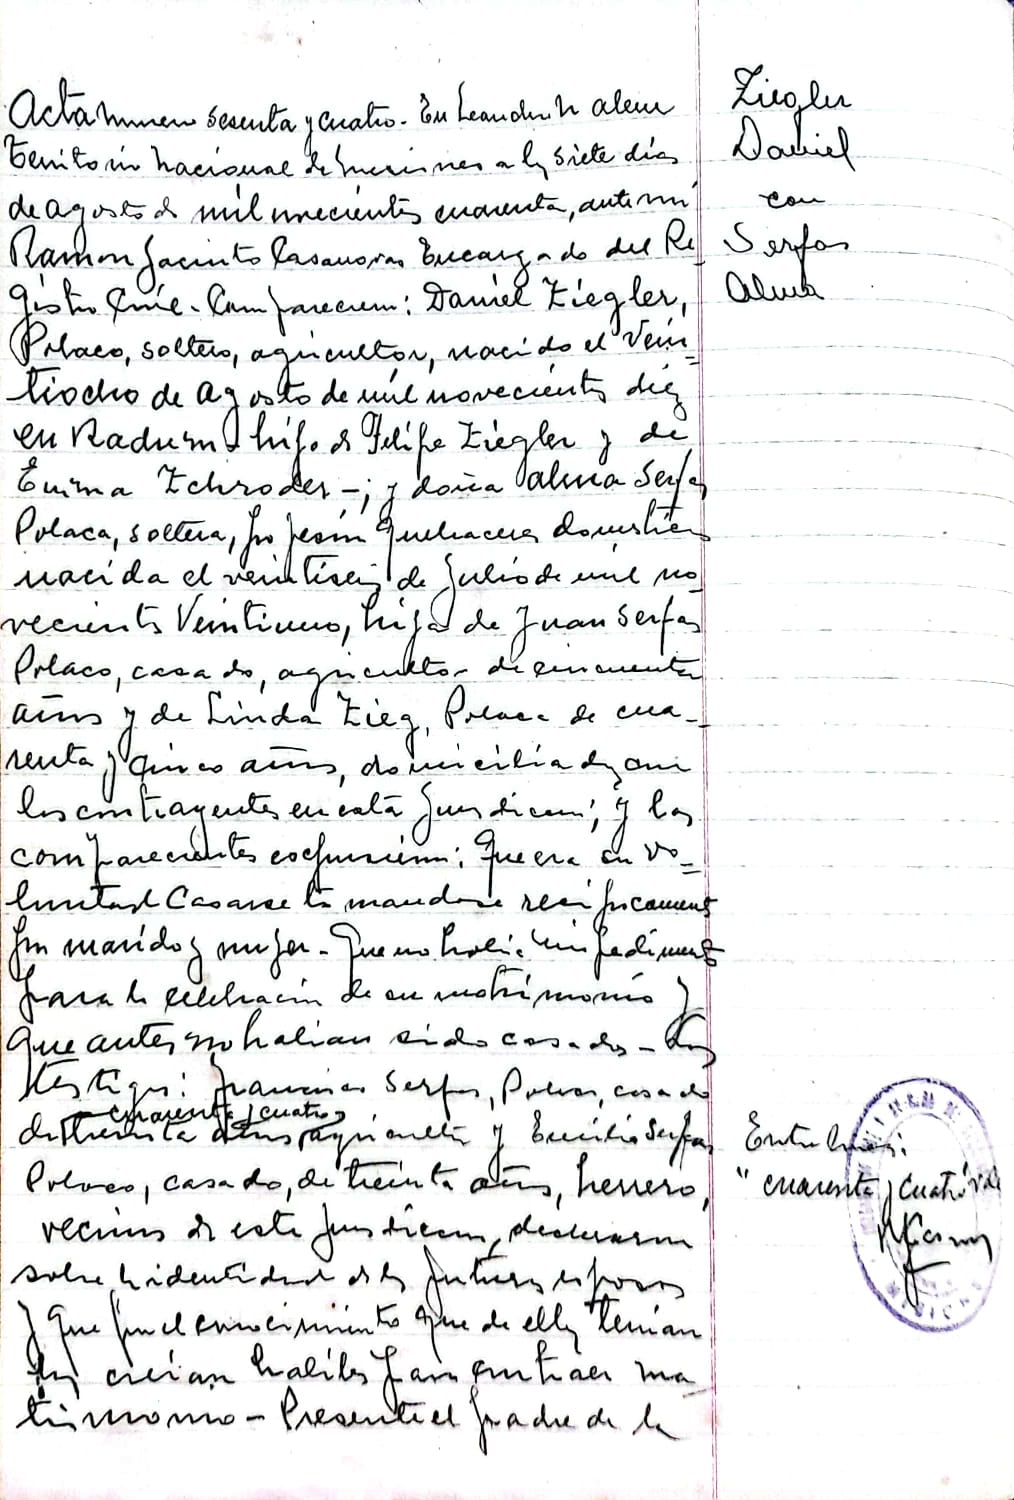 Acta numero sesenta y cuatro. En Leandro N Alem
Territorio Nacional de Misiones a los siete dias
de agosto de mil novecientos cuarenta, ante mi
Ramon Jacinto Casanovas Encargado del Re
gistro Civil. Comparecen: Daniel Ziegler,
Polaco, soltero, agricultor, nacido el Vein-
tiocho de agosto de mil novecientos diez
en Radurm hijo de Felipe Ziegler y de
Emma Zchroder -; y doña Alma Serfas
Polaca, soltera, profesión quehaceres domesticos
nacida el veintiseis de Julio de mil no
vecientos Veintiuno, hija de Juan Serfas
Polaco, casado, agricultor de cincuenta
años y de Linda Zieg, Polaca de cua-
renta y cinco años, domiciliados con
los contrayentes en esta jurisdiccion; y los
comparecientes expusieron: Que era su vo-
luntad Casarse tomandose reciprocamente
por marido y mujer. Que no habia impedimento
para la celebración de su matrimonio y
que antes no habian sido casados - Los
testigos: Francisco Serfas, Polaco, casado
cuarenta y cuatro
de treinta años agricultor y Emilio Serfas
Polaco, casado, de treinta años, herrero,
vecinos de esta jurisdiccion, declararon
sobre la identidad de los futuros esposos
y que por el conocimiento que de ellos tenian
los creian habiles para contraer ma
trimonio - Presente el padre de la
Ziegler
Daniel
con
Serfas
Alma
Entre lineas:
"cuarenta y cuatro" vale